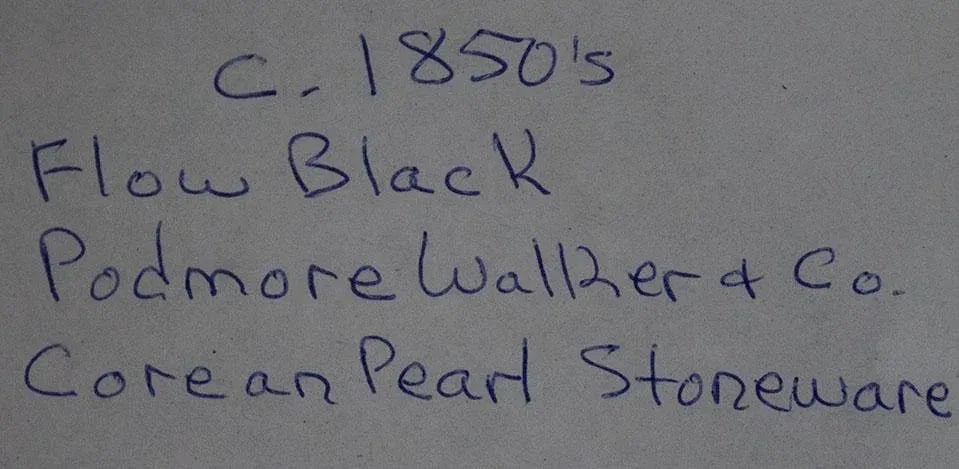 c. 1850's
Flow Black
Podmore Walker & Co.
Corean Pearl Stoneware